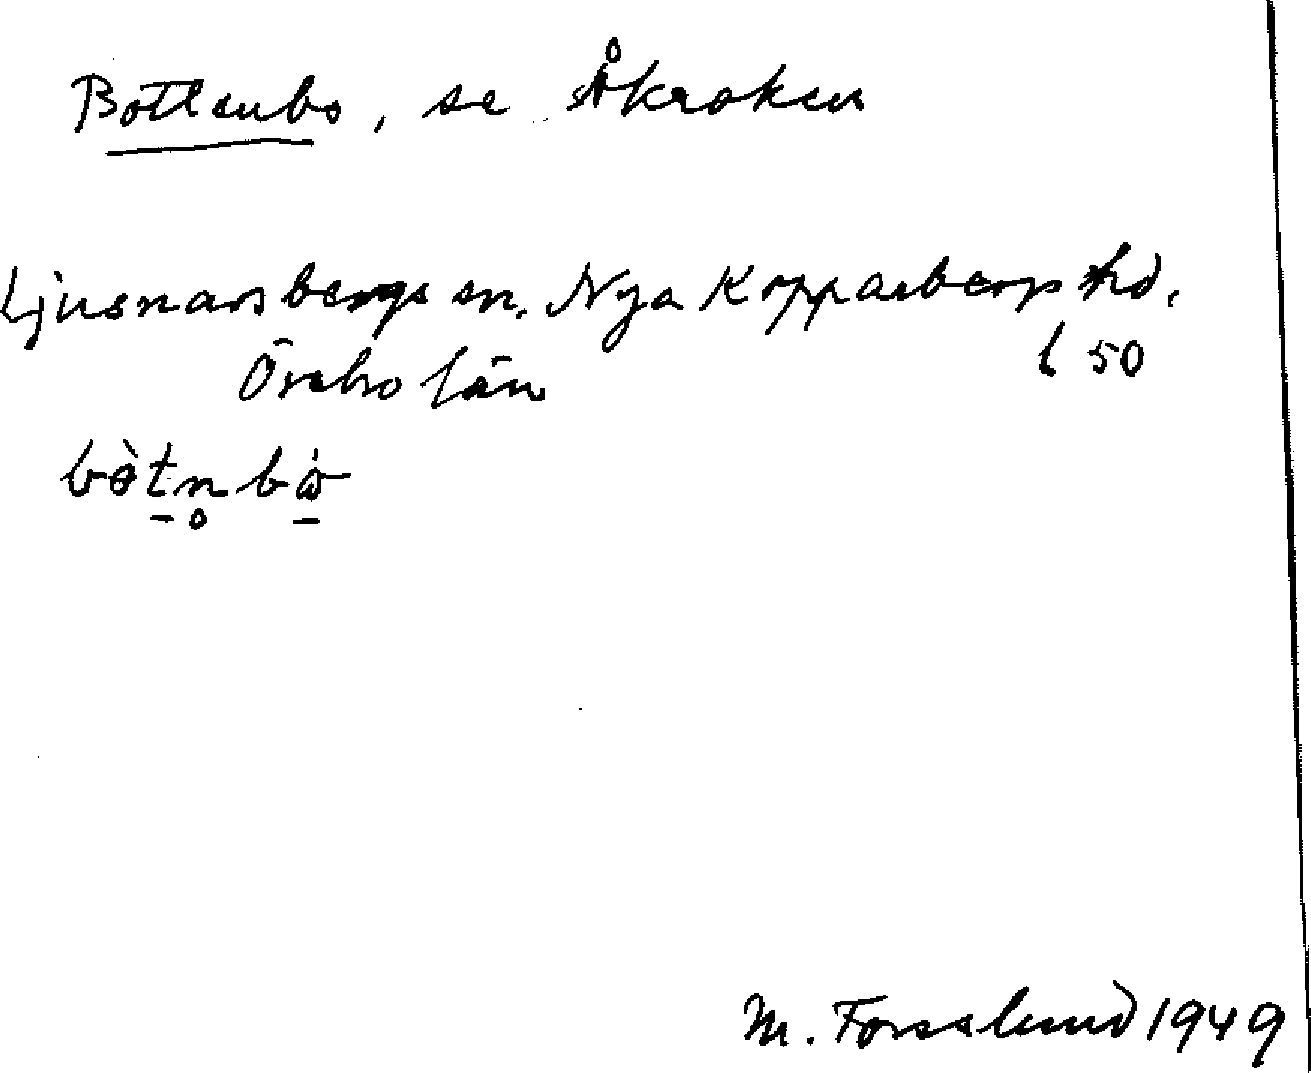 Bottenbo, se Åkroken
Ljusnarsbergs sn. Nya Kopparbergs hd.
Örebro län l 50
bòtn̥bȯ
M. Forsslund 1949